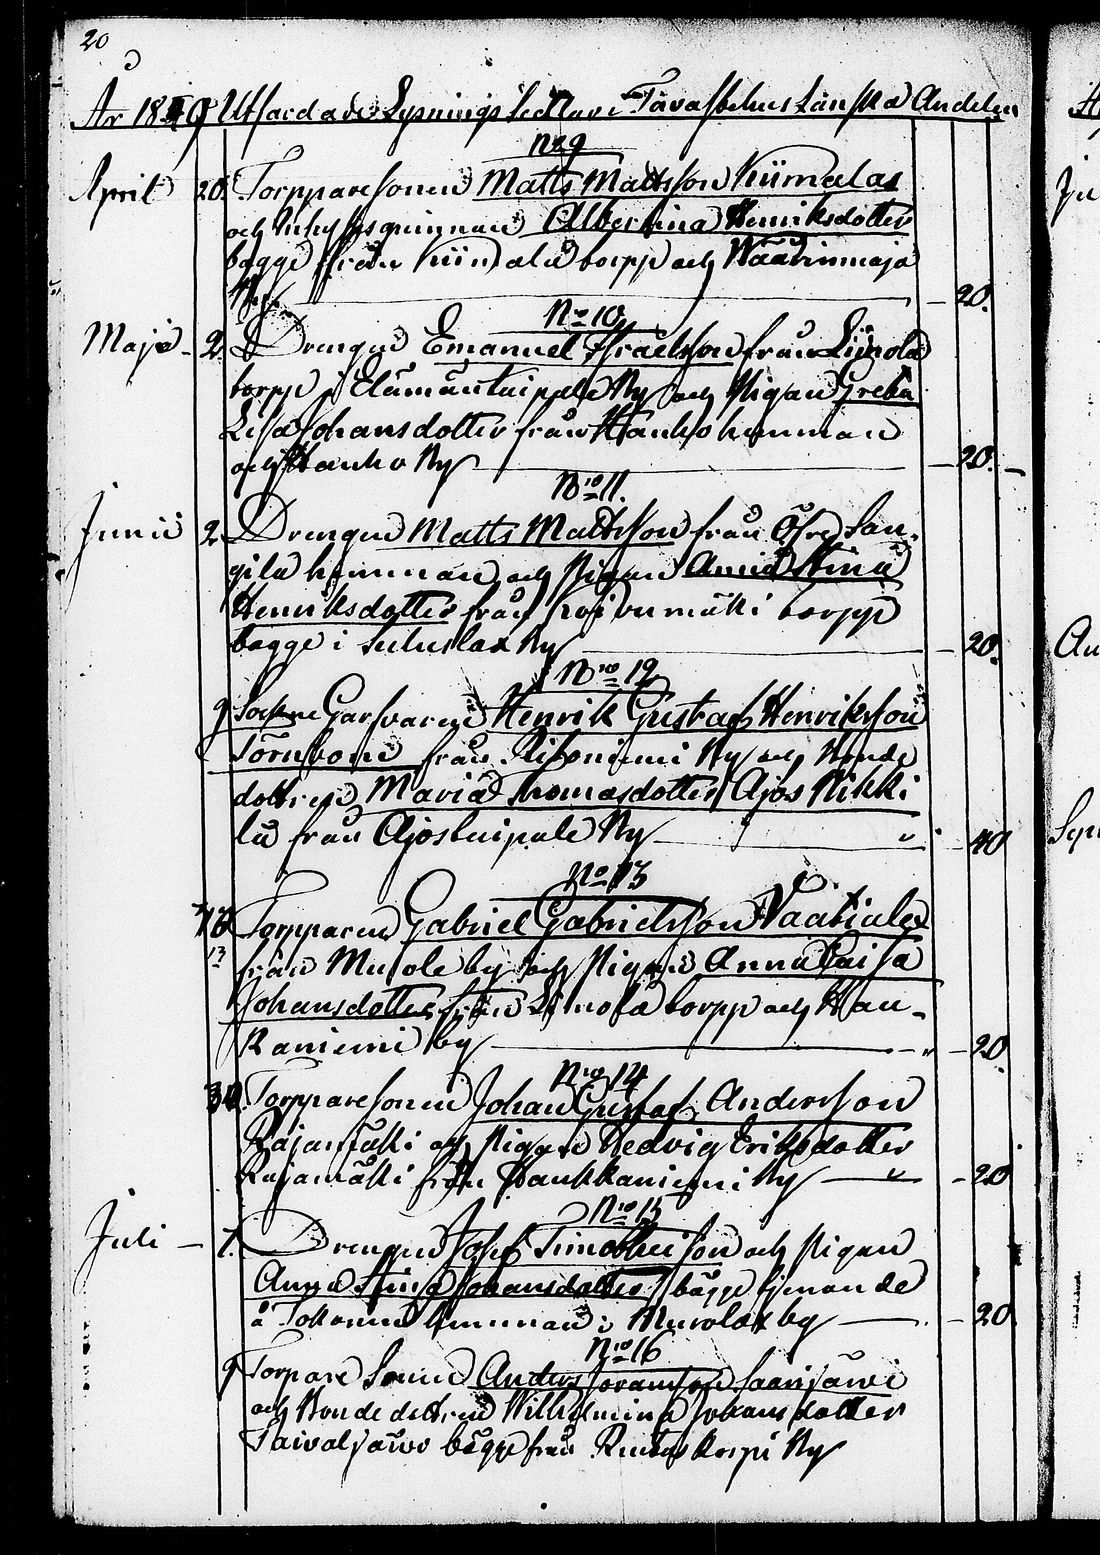 20
År 1840 Utfärdade Lysnings Sedlar i Tavastehus Läns Andelen
No 9
April 20. Torpparesonen Matts Mattsson Kiimalas
och Inhysesqvinnan Albertina Henriksdotter
bägge från torpp och
By 20.
No 10
Maji 2. Drengen Emanuel Israelsson från
torpp i Elämäntaipale By och Pigan Greta
Lisa Johansdotter från Hanho hemman
och Hanho By 20.
No 11.
Junii 2. Drengen Matts Mattsson från Öfre San-
gila hemman och Pigan Anna Stina
Henriksdotter från Koivumäki torpp
bägge i Suhuslax By 20.
No 12
9 Socken Garfvaren Henrik Gustaf Henriksson
Törnbom från By och Bonde
dottren Maria Thomasdotter Ajos Mikki
la från Ajostaipale By 40
No 13
13 Torpparen Gabriel Gabrielsson Vaatiala
från Murole by och Pigan Anna Caisa
Johansdotter från torpp och Hau-
kaniemi by 20
No 14
30. Torpparesonen Johan Gustaf Andersson
Rajamäki och Pigan Hedvig Eriksdotter
Rajamäki från Haukkaniemi By 20
No 15
Juli 1. Drengen Josef Timotheisson och Pigan
Anna Stina Johansdotter, bägge tjenande
å hemman i Murolax by 20
No 16
9 Torpare Sonen Anders Saarijäwi
och Bonde dottren Wilhelmina Johansdotter
Taivaljäwi bägge från Ruutaskorpi By